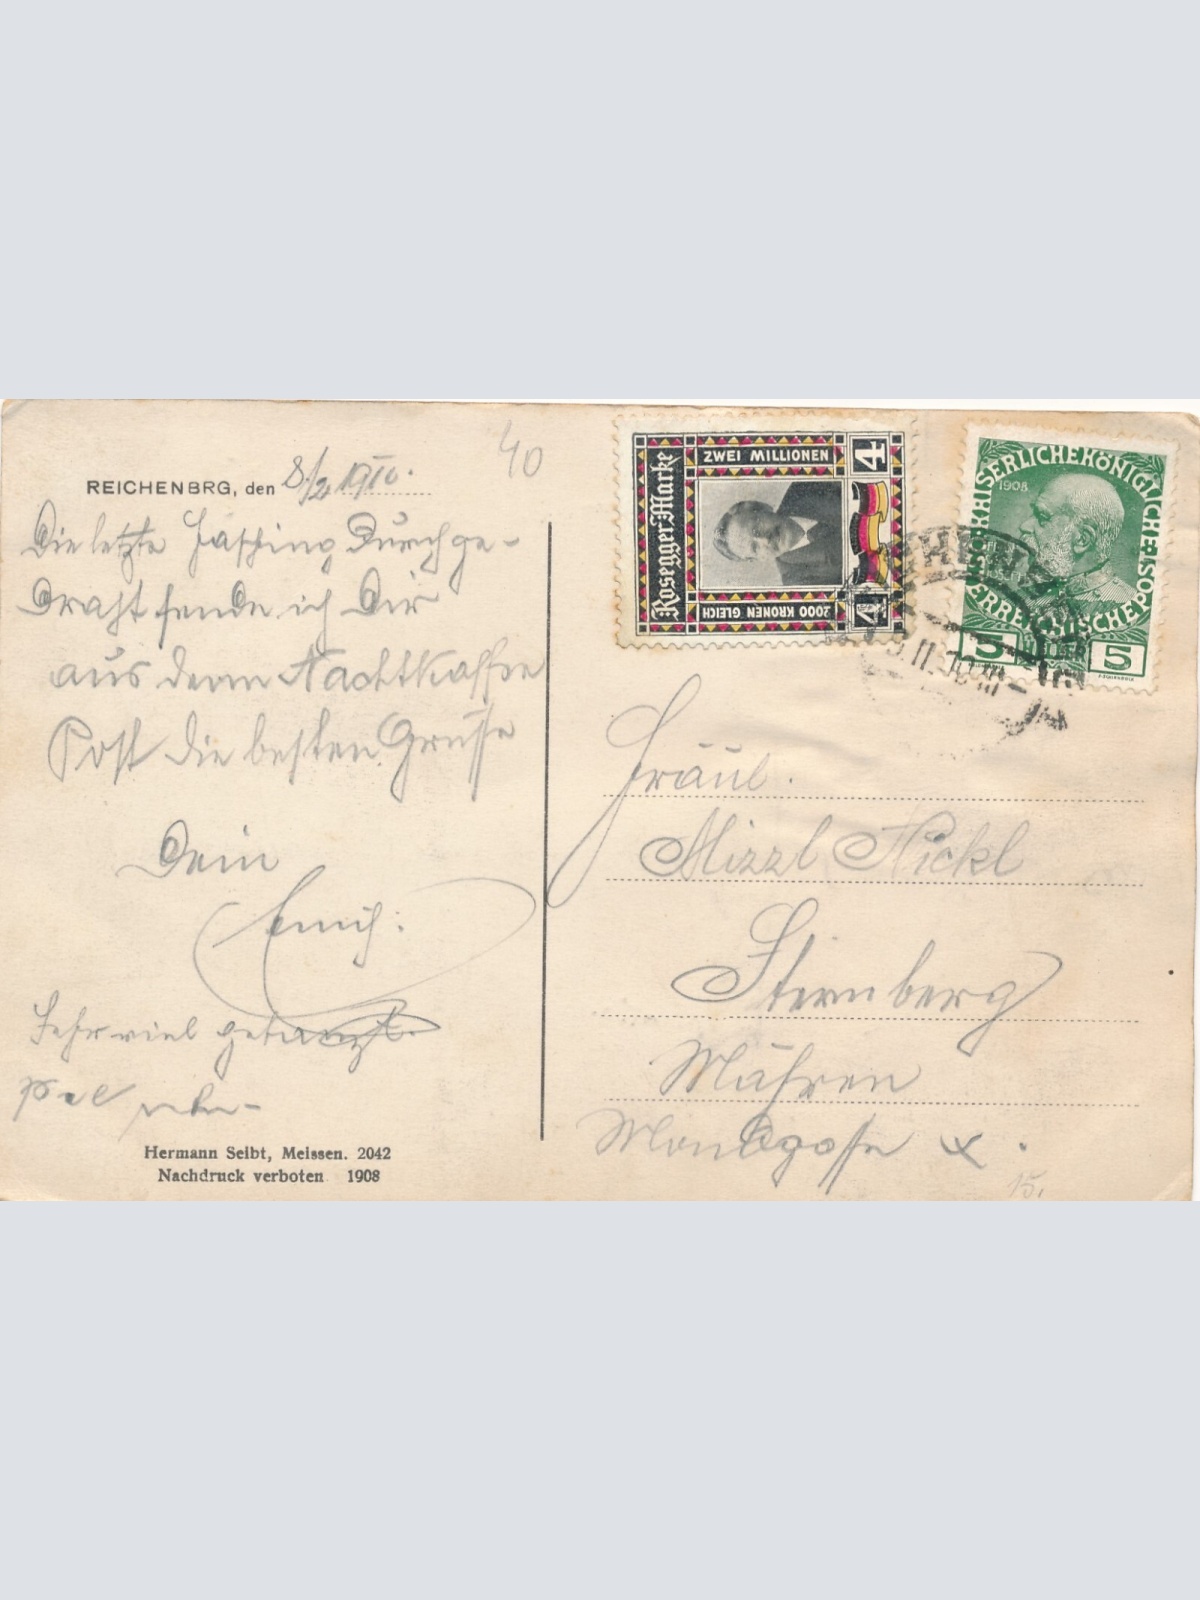 40
REICHENBRG, den 8/2 1910.
Die letzte Fasching durchge-
draht sende ich Dir
aus dem Nachtkaffee
Post die besten Grüsse
Dein
Sehr viel getanzt
Hermann Seibt, Meissen. 2042
Nachdruck verboten 1908
Rosegger-Marke
ZWEI MILLIONEN
2000 KRONEN GLEICH
4
4
KAISERLICHE KÖNIGLICHE ÖSTERREICHISCHE POST
1908
5 HELLER 5
9.II.10
Fräul.
Mizzl Hickl
Sternberg
Mähren
15.